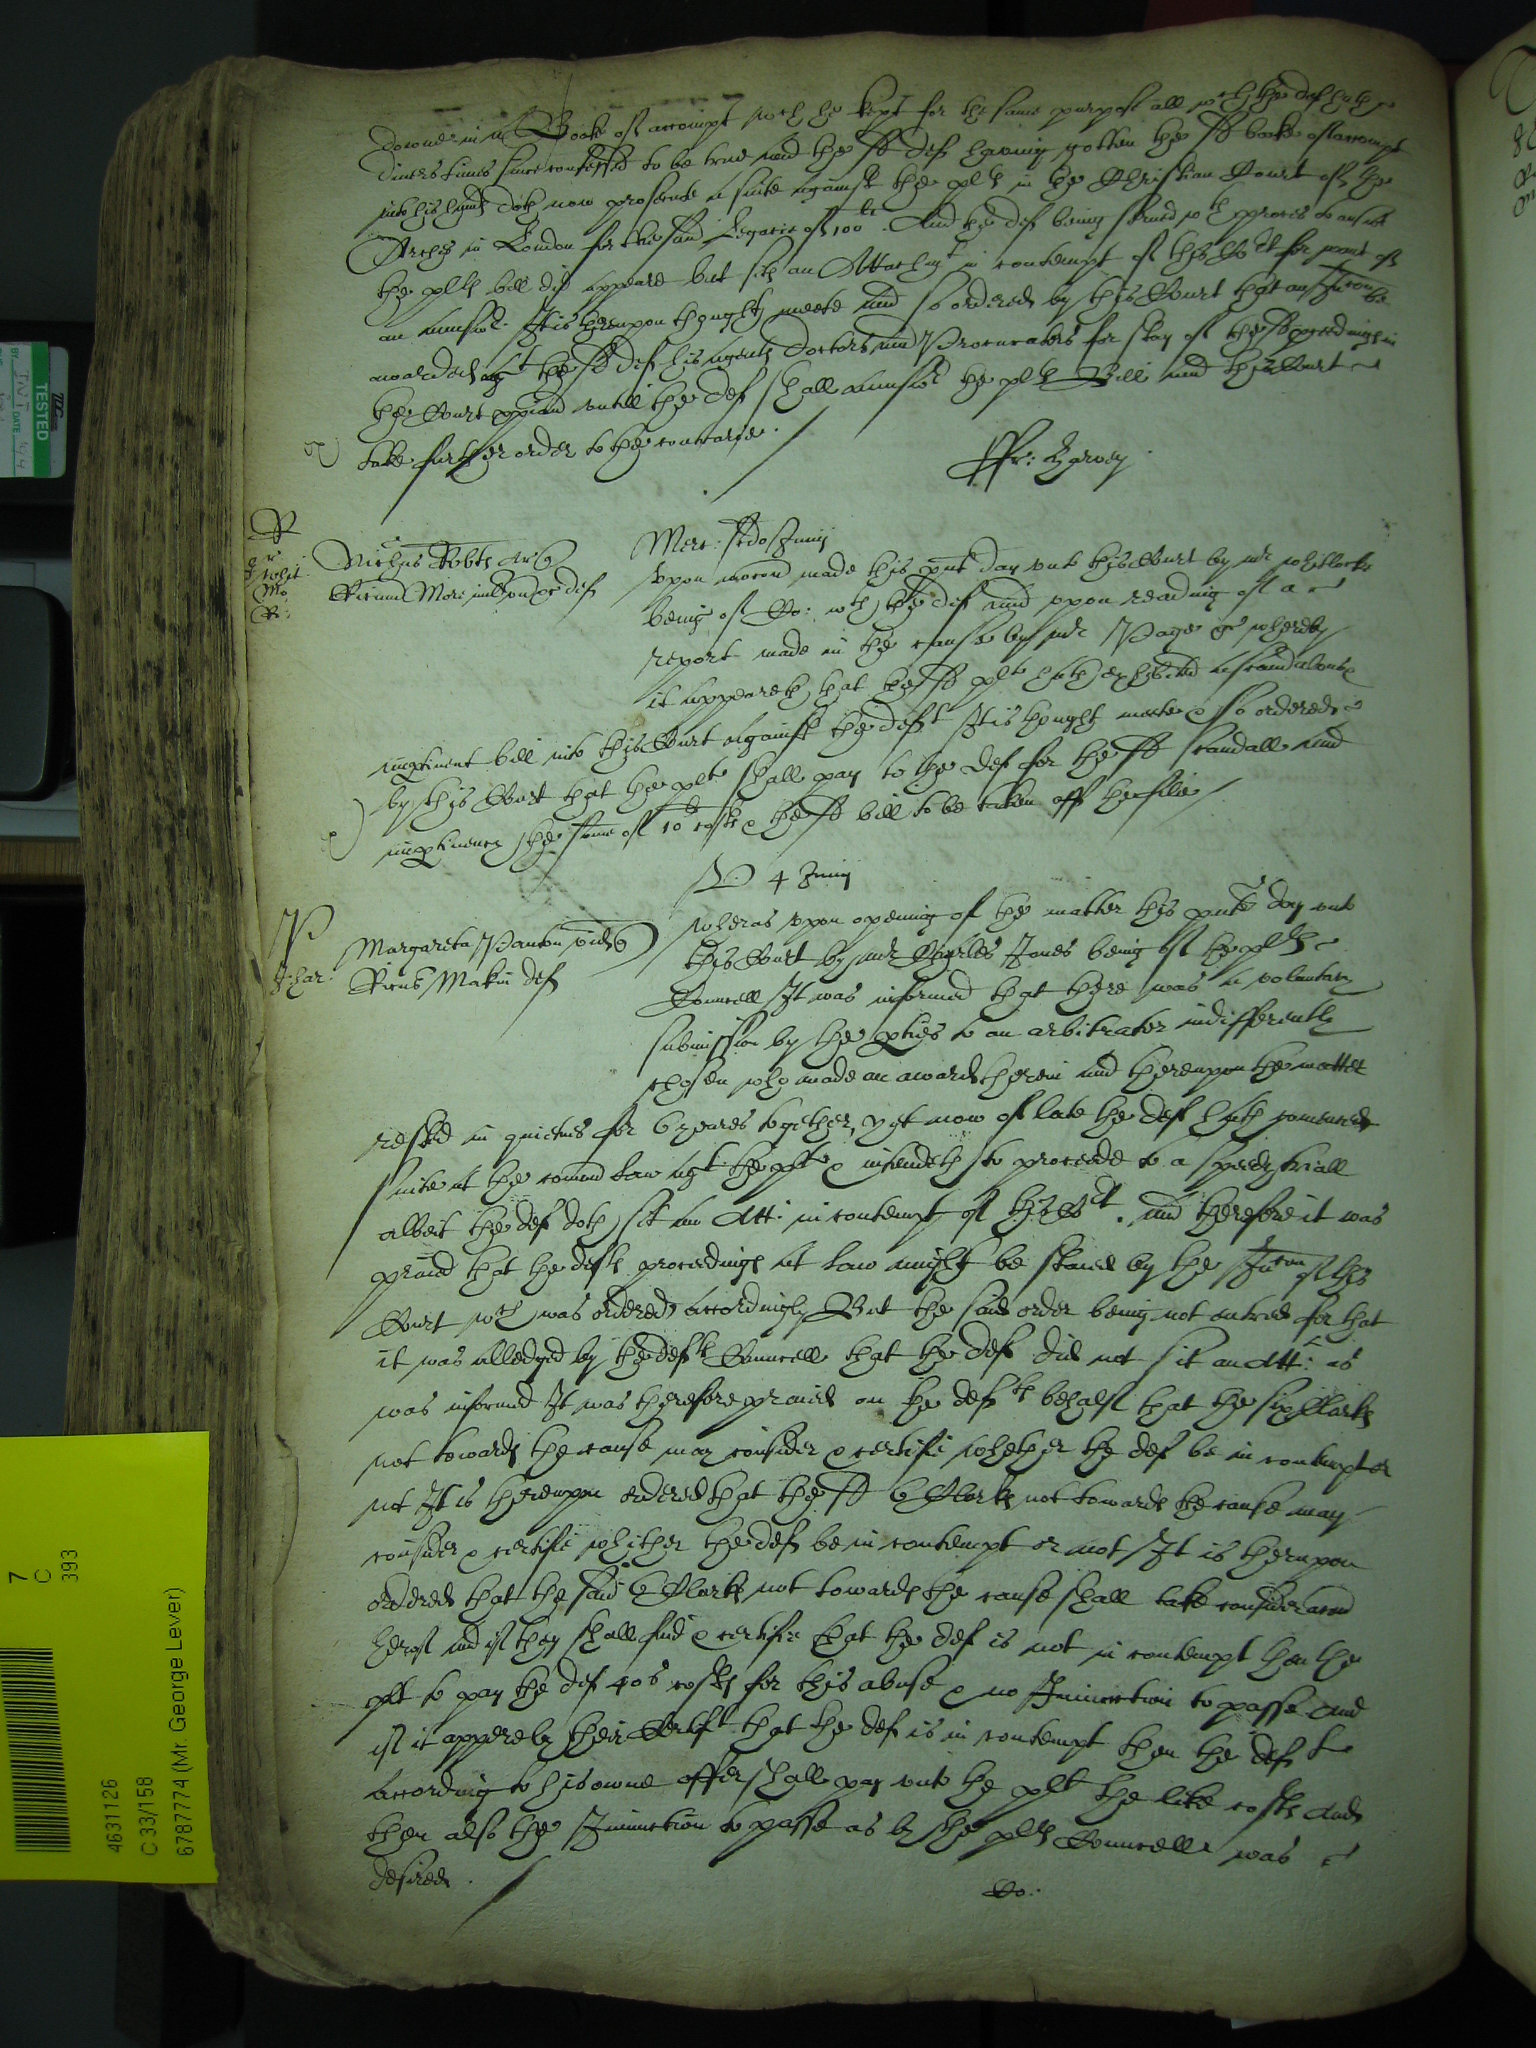 downe in a Booke of accompt wch he kept for the same purpose all wch the def hath
divers times since confessed to be true and the sd def having gotten the sd booke of accompt
into his hands doth now prosecute a suite against the plt in the Christian Court of the
Arches in London for the said Legacie of 100li. And the def being served wth proces to answ
the plts bill did appeare but sitts an Attachmt in contempt of this Cort for want of
an answer. It is thereupon thought meete and so ordered by this Court that an Iniuncon be
awarded agt the sd def his agents doctors and Procurators for stay of the sd proceedings in
the Court xpian untill the def shall answer the plts Bill and this Court
take further order to the contrarie.
ffr: Harvey
R
Whit
Mo
R:
Merc: scdo Junij
Nichus Robts Ar quer
Ricum More def
Upon mocon made this pnt day unto this Court by mr Whitlocke
being of Co: wth the def and upon reading of a
report made in the cause by mr Page &c whereby
it appeareth that the sd plt hath exhibited a scandalous &
impertinent bill into this Court against the deft It is thought meete & so ordered
by this Court that the plt shall pay to the def for the sd scandall and
impertinency the some of 10 costs & the sd bill to be taken off the file
4 Junij
P
Char:
Margareta Panton vid quer
Ricus Makin def
Whereas upon opening of the matter this pnte day unto
this Court by mr Charles Jones being of the plts
Councell It was informed that there was a voluntary
submission by the pties to an arbitrator indifferently
chosen who made an award therein and thereupon the matter
rested in quietnes for 6 yeares together, yet now of late the def hath comenced
suite at the comon Law agt the plt & intendeth to proceede to a speedy triall
albeit the def doth sit an Att: in contempt of this Cort. and therefore it was
praied that the defts proceedings at Law might be staied by the Iniuncon of this
Court wch was ordered accordingly But the said order being not entred for that
it was alledged by the defts Councell that the def did not sit an Att: as
was informed It was therefore praied on the defts behalf that the six Clarks
not towards the cause may consider & certifie whether the def be in contempt or
not It is thereupon ordered that the sd 6 Clarks not towards the cause may
consider & certifie whither the def be in contempt or not It is thereupon
ordered that the said 6 Clarks not towards the cause shall take consideracon
thereof and if they shall find & certifie that the def is not in contempt then the
plt to pay the def 40s costs for this abuse & no Iniunction to passe And
if it appere by their Certift that the def is in contempt then the deft
according to his owne offer shall pay unto the plt the like costs And
then also the Iniunction to passe as by the plts Councell was
desired.
Co:
TESTED
DATE
7
C
393
4631126
C 33/158
6787774 (Mr. George Lever)